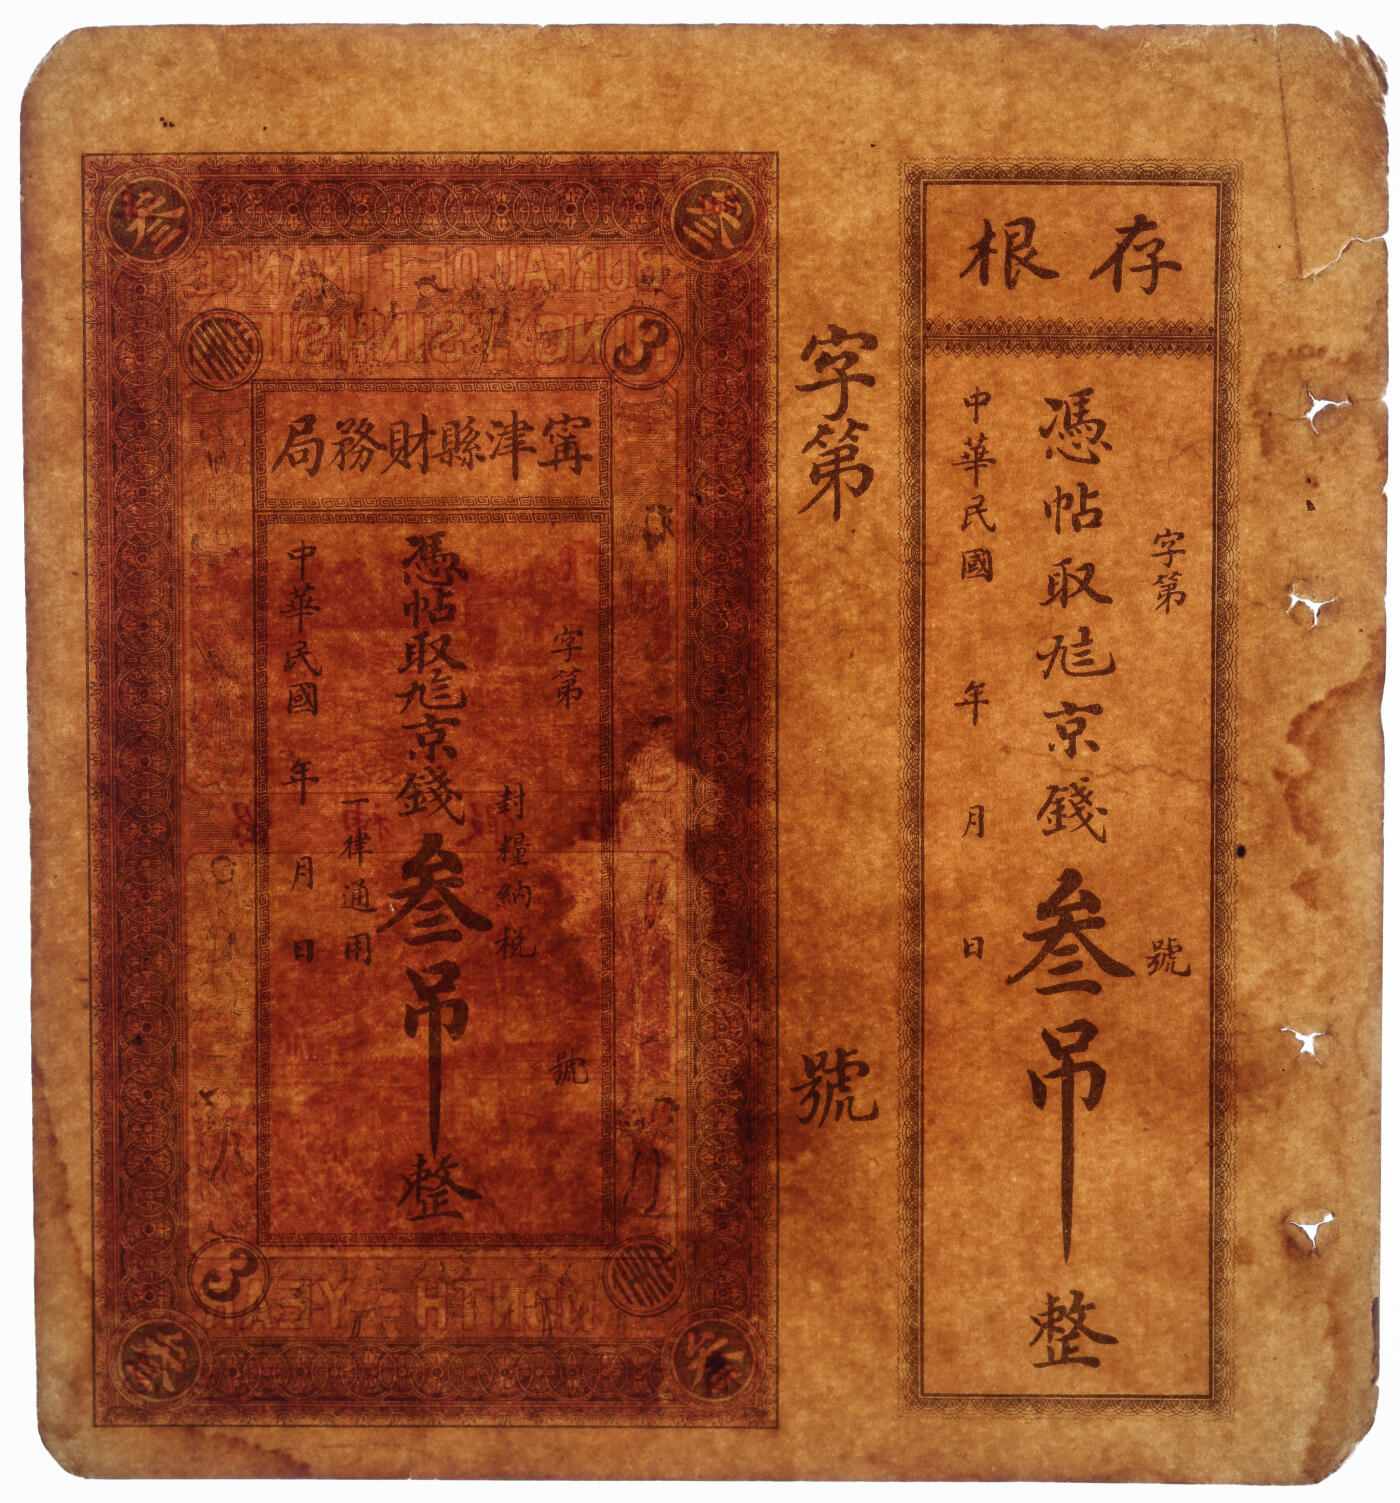 存根
字第 號
憑帖取京錢叁吊整
中華民國 年 月 日
字第 號
叁 叁
BUREAU OF FINANCE
3
甯津縣財務局
字第 號
封糧納稅
憑帖取京錢叁吊整
一律通用
中華民國 年 月 日
3
MONTH YEAR
叁 叁